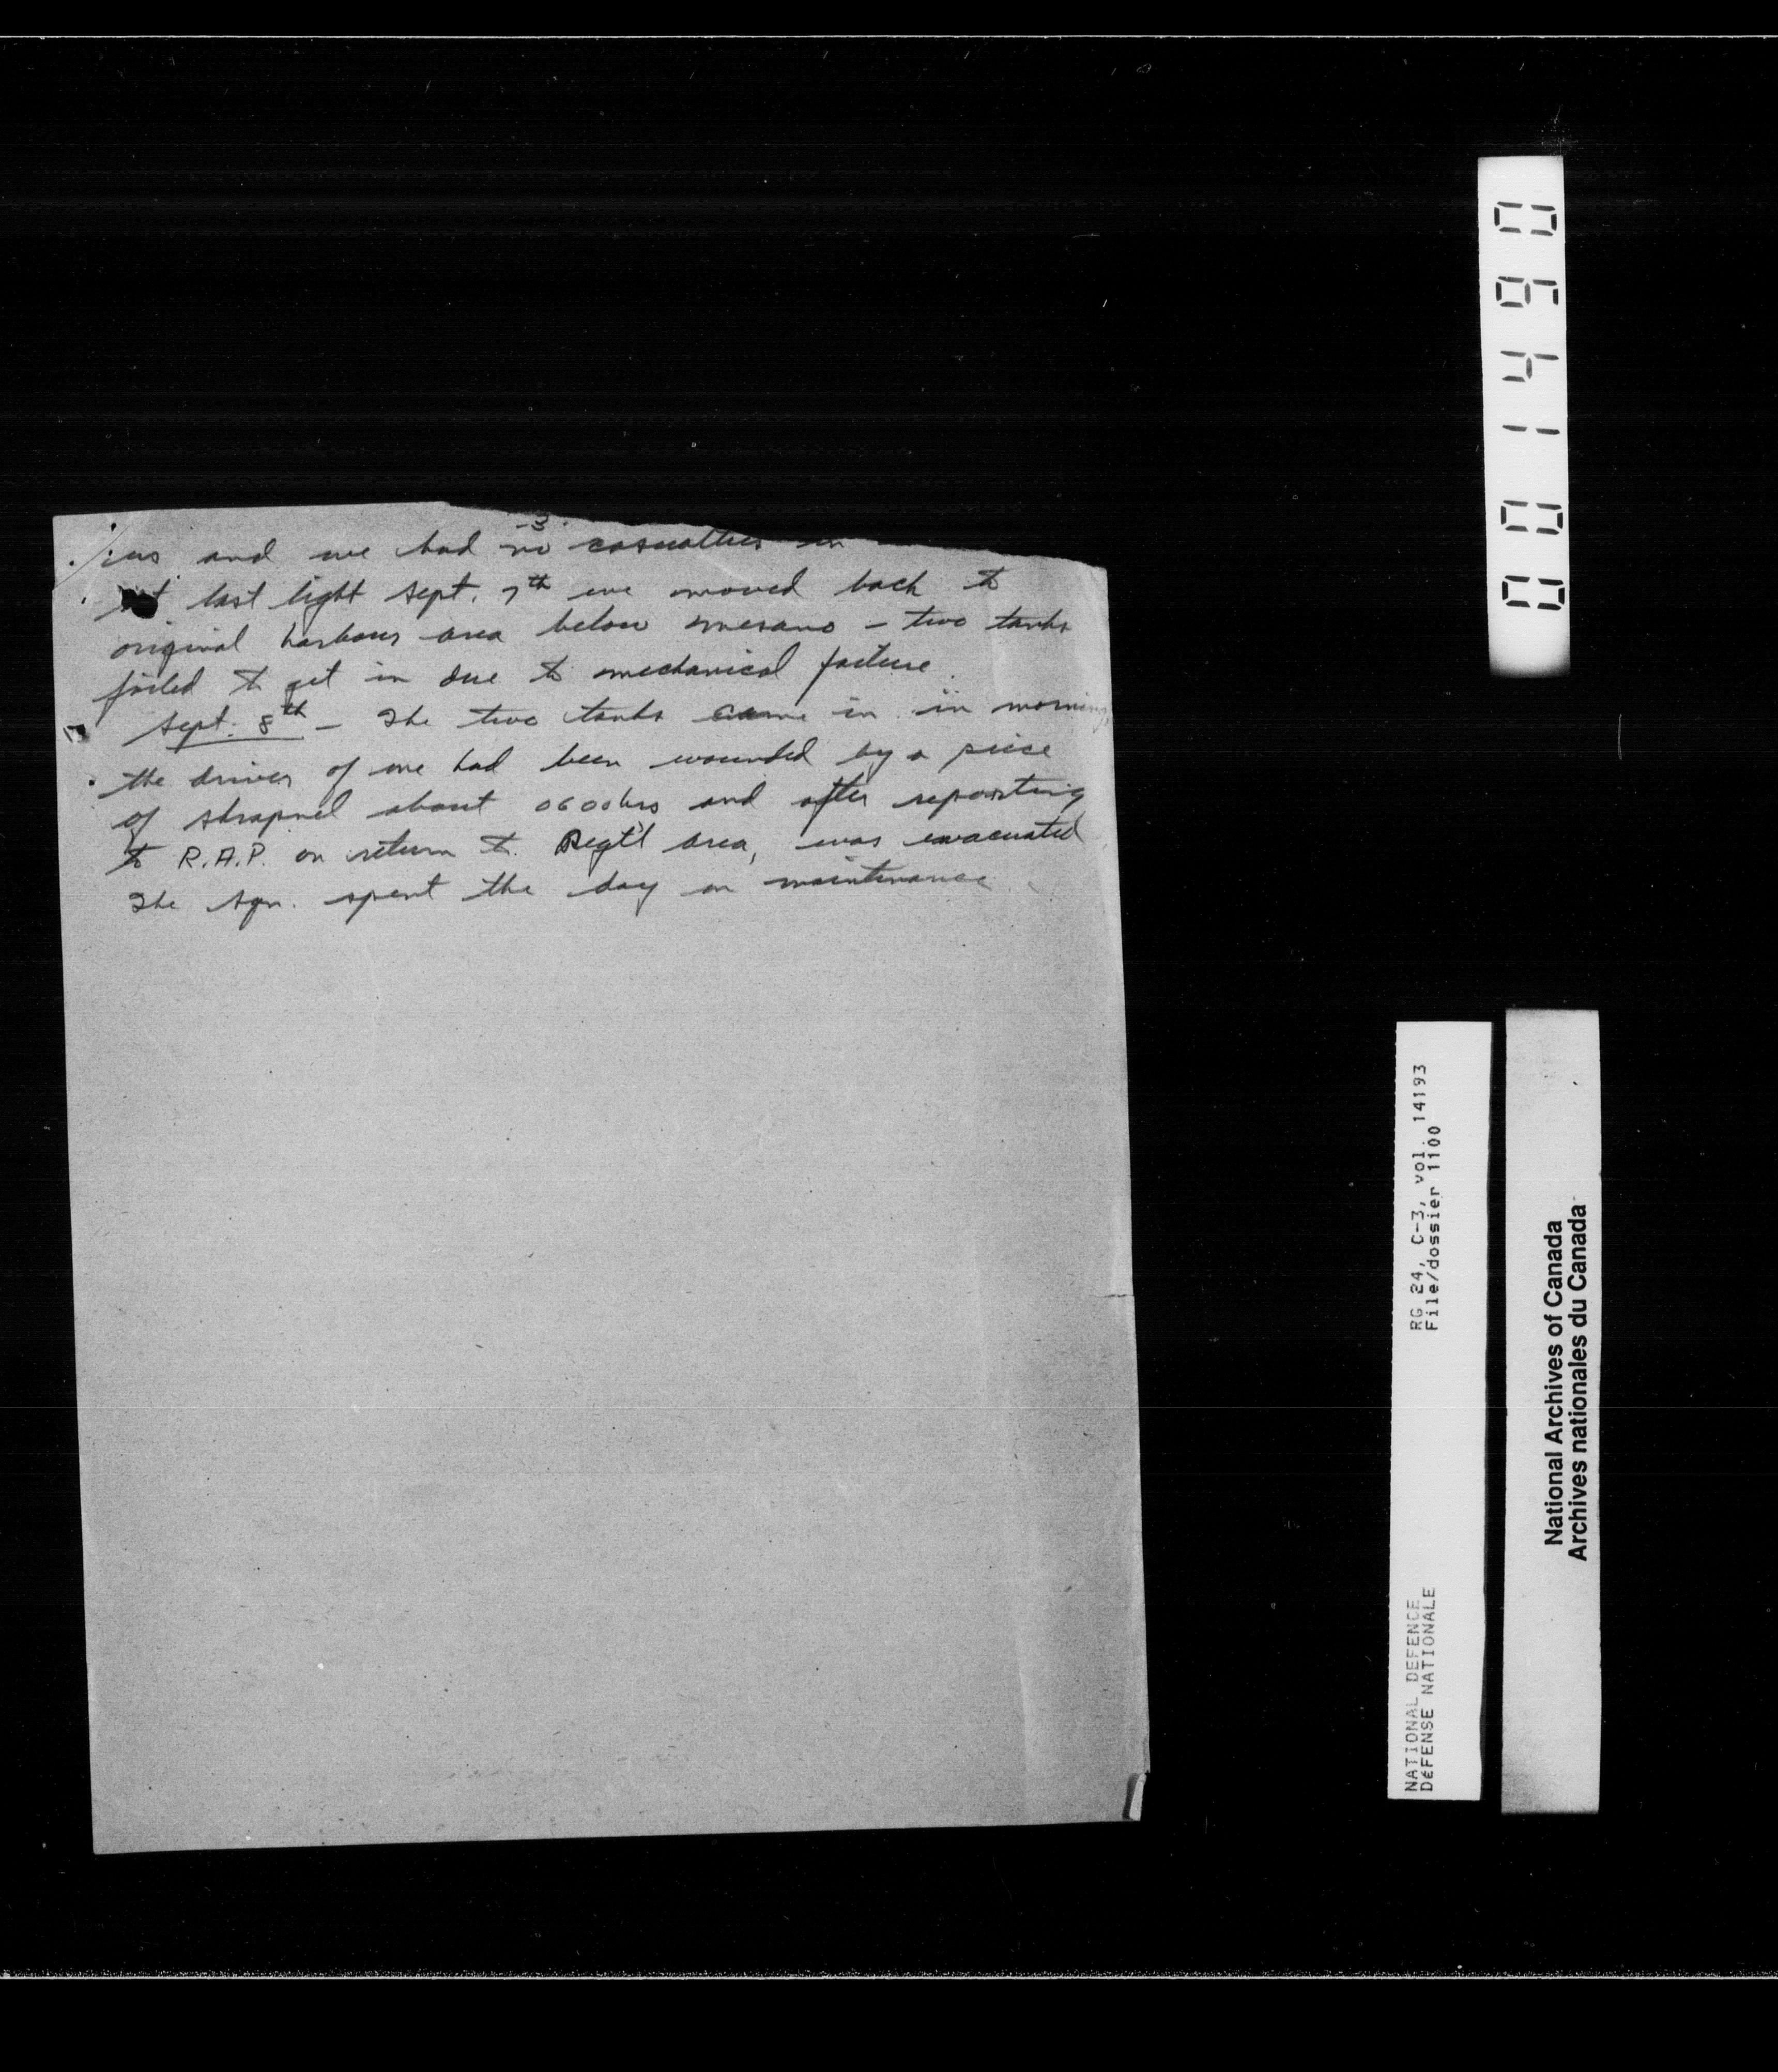 -3-
us and we had no casualties in
at last light Sept. 7th we moved back to
original harbour area below Mesano - two tanks
failed to get in due to mechanical failure.
Sept. 8th - The two tanks came in in morning
the driver of one had been wounded by a piece
of shrapnel about 0600hrs and after reporting
to R.A.P. on return to Regt'l area, was evacuated
The sqn. spent the day on maintenance
001490
RG 24, C-3, vol. 14193
File/dossier 1100
NATIONAL DEFENCE
DéFENSE NATIONALE
National Archives of Canada
Archives nationales du Canada